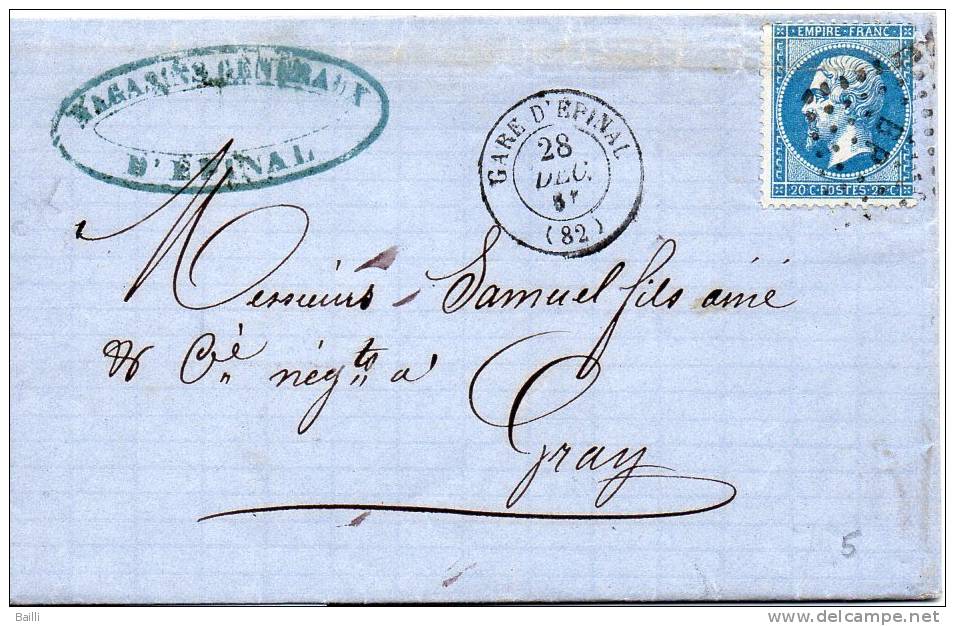 MAGASINS GENERAUX
D'ÉPINAL
GARE D'ÉPINAL
28
DEC.
(82)
EMPIRE FRANC
20 C POSTES 20 C
Messieurs Samuel fils ainé
& Cie négts à
Gray
5
Bailli
delcampe.net